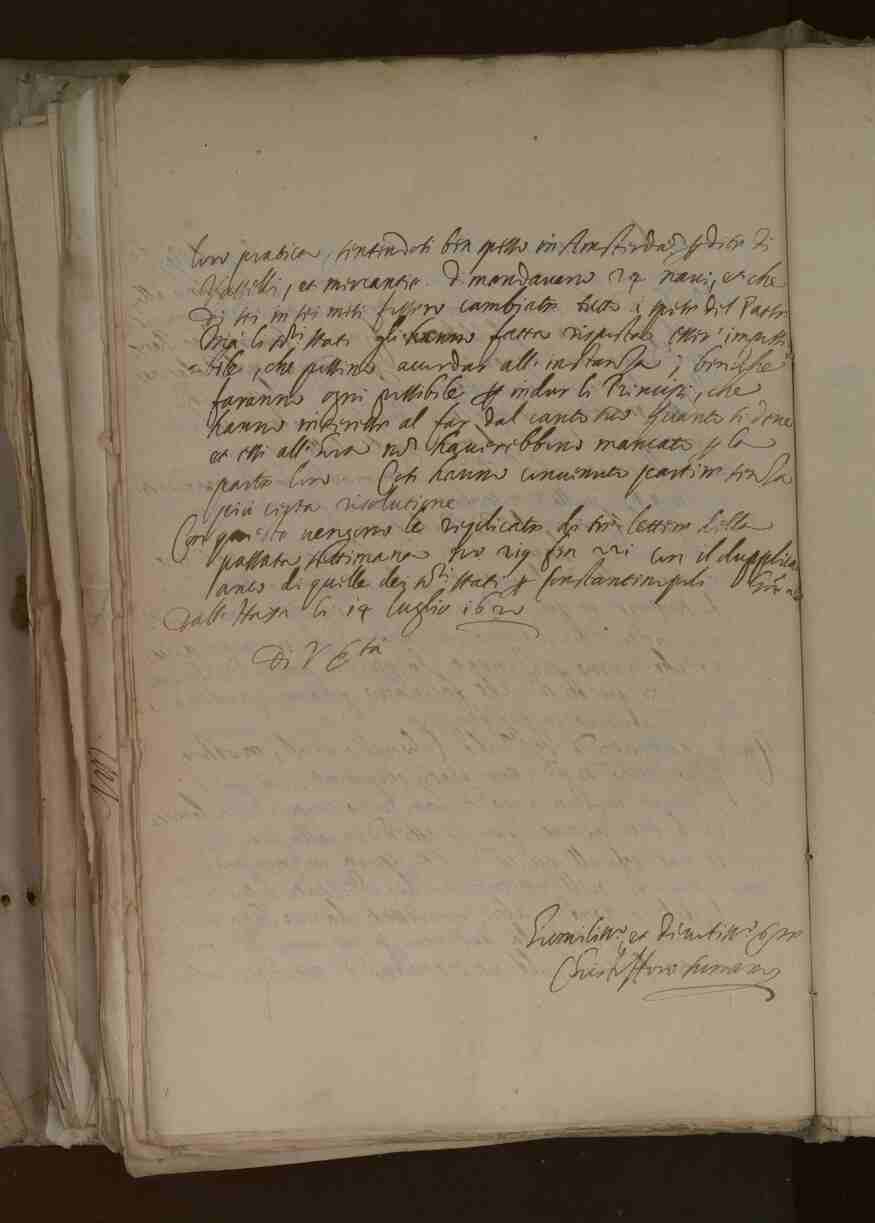 loro pratica, sentendosi ben spesso in Amsterdam perdite di
Vasselli, et mercantie. Dimandavano 24 navi, et che
di sei in sei mesi fossero cambiate tutte a spese del Paese
Mà li s.ri stati gli hanno fatta risposta esser' impossi
bile, che possino accordar all'instanza; benche
faranno ogni possibile per indur li Principi, che
hanno interesse al far dal canto suo quanto si deve
et essi all'hora non haverebbono mancato per la
parte loro. Così hanno convenuto partire senza
più certa risolutione
Con questo vengono le replicate di tre lettere della
passata settimana no 219 fin 221 con il dupplica
anco di quelle dei s.ri stati per Constantinopoli
Dall'Haya li 14 luglio 1620
Di V. S.tà
Humiliss.o et Devotiss.o ser.re
Christofforo Suriano